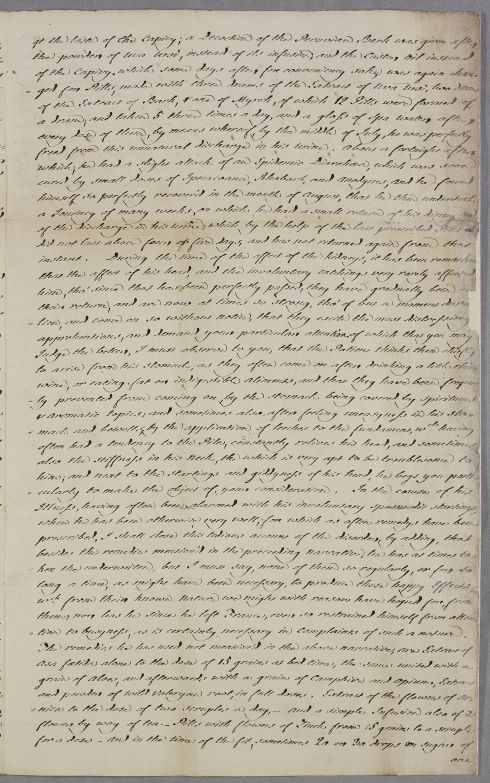 of the taste of the Capivy; a Decoction of the Peruvian Bark was given after
the powder of uva ursi, instead of its infusion, and the Castor Oil instead
of the Capivy, which some days after, for conveniency sake, was again chan-
ged for Pills, made with three drams of the Extract of uva ursi, two drams
of the Extract of Bark, & one of Myrrh, of which 12 Pills were formed of
a dram, and taken 5 three times a day, and a glass of Spa water after
every dose of them, by means whereof, by the middle of July, he was perfectly
freed from this unnatural discharge in his urine. About a fortnight after
which, he had a slight attack of an Epidemic Diarrhœa, which was soon
cured by small doses of Ipecacuana, Rhubarb, and Anodynes, and he found
himself so perfectly recovered in the month of August, that he then undertook
a Journey of many weeks, on which he had a small return of his dizziness
of the discharge in his urine, which by the help of the last prescribed Pills
did not last above four or five days, and has not returned again from that
instant. During the time of the affect of the kidneys, it has been remarked
that the affect of his head, and the involuntary catchings very rarely affected
him, tho' since that has been perfectly passed, they have gradually been
their return, and are now at times so strong, tho' of but a momentary dura-
tion, and come on so without notice, that they excite the most distressing
apprehensions, and demand your particular attention, of which that you may
Judge the better, I must observe to you, that the Patient thinks them chiefly
to arise from his stomach, as they often come on after drinking a little thin
wine, or eating fat or indigestible aliments, and that they have been frequent-
ly prevented from coming on by the stomach being covered by spirituous
& aromatic topics, and sometimes also after feeling uneasyness in his sto-
mach and bowels, by the application of leeches to the fundament, wch having
often had a tendency to the Piles, constantly relieves his head, and sometimes
also the stiffness in his neck, the which is very apt to be troublesome to
him, and next to the startings and giddyness of his head, he begs you parti-
cularly to make the object of your consideration. In the course of his
Illness, having often been alarmed with his involuntary spasmodic startings
when he has been otherwise very well, for which as often remedys have been
prescribed, I shall close this tedious account of the disorder, by adding, that
besides the remedies mention'd in the preceding narrative, he has at times ta-
ken the underwritten, but I must say, none of them so regularly, or for so
long a time, as might have been necessary, to produce those happy Effects
wch from their known nature we might with reason have hoped for, from
them, nor has he since he left France, ever so restrained himself from atten-
tion to busyness, as is certainly necessary in complaints of such a nature.
The remedies he has used not mention'd in the above narrative, are Extract of
Assa fœtida alone to the dose of 15 grains at bed time, the same united with a
grain of Aloes, and afterwards with a grain of Camphire and opium, Extract
and powder of wild valeryan root, in full doses. Extract of the flowers of Ar-
nica to the dose of two scruples a day, - and a simple Infusion also of its
flowers by way of tea - Pills with flowers of Zinck from 15 grains to a scruple
for a dose - and in the time of the fit, sometimes 20 or 30 drops on sugar of